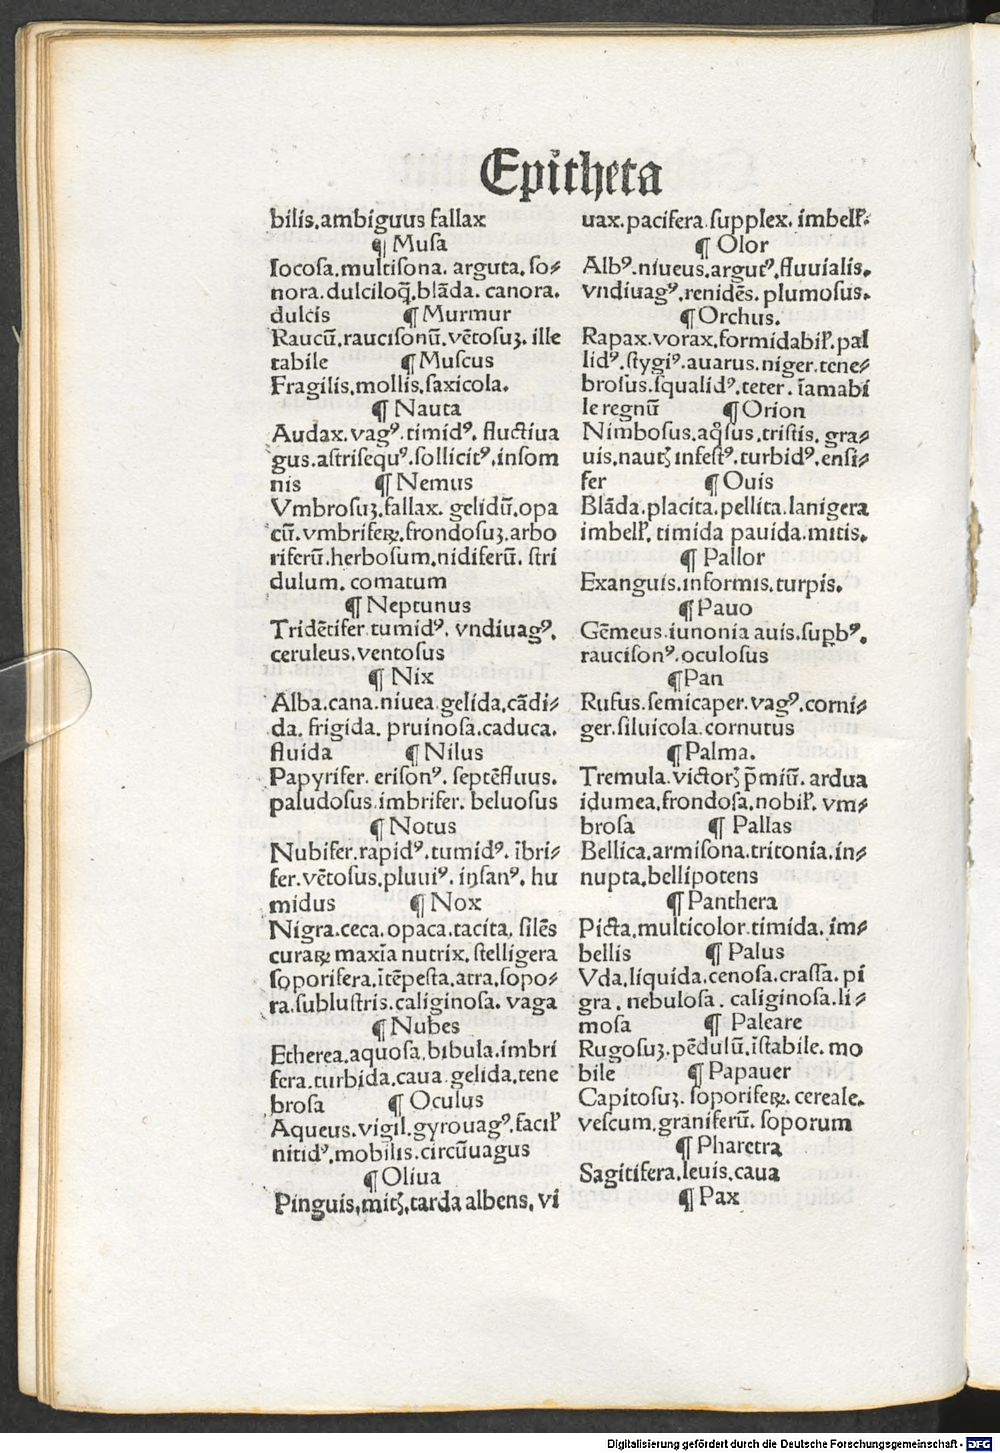 Epitheta
bilis.ambiguus fallax
¶ Musa
Iocosa.multisona. arguta.so⸗
nora.dulciloq̃.blãda. canora.
dulcis ¶ Murmur
Raucũ.raucisonũ.vẽtosuꝫ.ille
tabile ¶ Muscus
Fragilis,mollis,saxicola.
¶ Nauta
Audax.vagꝰ.timidꝰ. fluctiua
gus.astrisequꝰ.sollicitꝰ.insom
nis ¶ Nemus
Vmbrosuꝫ.fallax. gelidũ.opa
cũ.vmbriferꝝ.frondosuꝫ.arbo
riferũ.herbosum.nidiferũ. stri
dulum. comatum
¶ Neptunus
Tridẽtifer.tumidꝰ. vndiuagꝰ.
ceruleus.ventosus
¶ Nix
Alba.cana.niuea.gelida.cãdi⸗
da. frigida. pruinosa.caduca.
fluida ¶ Nilus
Papyrifer. erisonꝰ. septẽfluus.
paludosus.imbrifer. beluosus
¶ Notus
Nubifer.rapidꝰ.tumidꝰ. ĩbri⸗
fer.vẽtosus.pluuiꝰ. insanꝰ. hu
midus ¶ Nox
Nigra.ceca.opaca.tacita, silẽs
curaꝝ maxĩa nutrix. stelligera
soporifera.ĩtẽpesta.atra.sopo⸗
ra.sublustris.caliginosa. vaga
¶ Nubes
Etherea.aquosa.bibula.imbri
fera.turbida.caua.gelida.tene
brosa ¶ Oculus
Aqueus.vigil.gyrouagꝰ.facilꝭ
nitidꝰ.mobilis.circũuagus
¶ Oliua
Pinguis.mitꝭ.tarda albens. vi
uax.pacifera.supplex. imbelꝭ.
¶ Olor
Albꝰ.niueus.argutꝰ.fluuialis.
vndiuagꝰ.renidẽs. plumosus.
¶ Orchus.
Rapax.vorax.formidabilꝭ.pal
lidꝰ.stygiꝰ.auarus.niger.tene⸗
brosus.squalidꝰ.teter. ĩamabi
le regnũ ¶ Orion
Nimbosus.aq̃sus.tristis. gra⸗
uis.nautꝭ infestꝰ.turbidꝰ.ensi⸗
fer ¶ Ouis
Blãda.placita.pellita.lanigera
imbelꝭ. timida pauida.mitis.
¶ Pallor
Exanguis.informis.turpis.
¶ Pauo
Gẽmeus.iunonia auis.suꝑbꝰ.
raucisonꝰ.oculosus
¶ Pan
Rufus.semicaper.vagꝰ.corni⸗
ger.siluicola.cornutus
¶ Palma.
Tremula.victorꝭ p̃miũ. ardua
idumea.frondosa.nobilꝭ. vm⸗
brosa ¶ Pallas
Bellica.armisona.tritonia.in⸗
nupta.bellipotens
¶ Panthera
Picta.multicolor.timida. im⸗
bellis ¶ Palus
Vda.liquida.cenosa.crassa. pi
gra. nebulosa. caliginosa.li⸗
mosa ¶ Paleare
Rugosuꝫ.pẽdulũ.ĩstabile. mo
bile ¶ Papauer
Capitosuꝫ. soporiferꝝ. cereale.
vescum.graniferũ. soporum
¶ Pharetra
Sagitifera.leuis.caua
¶ Pax
Digitalisierung gefördert durch die Deutsche Forschungsgemeinschaft - DFG